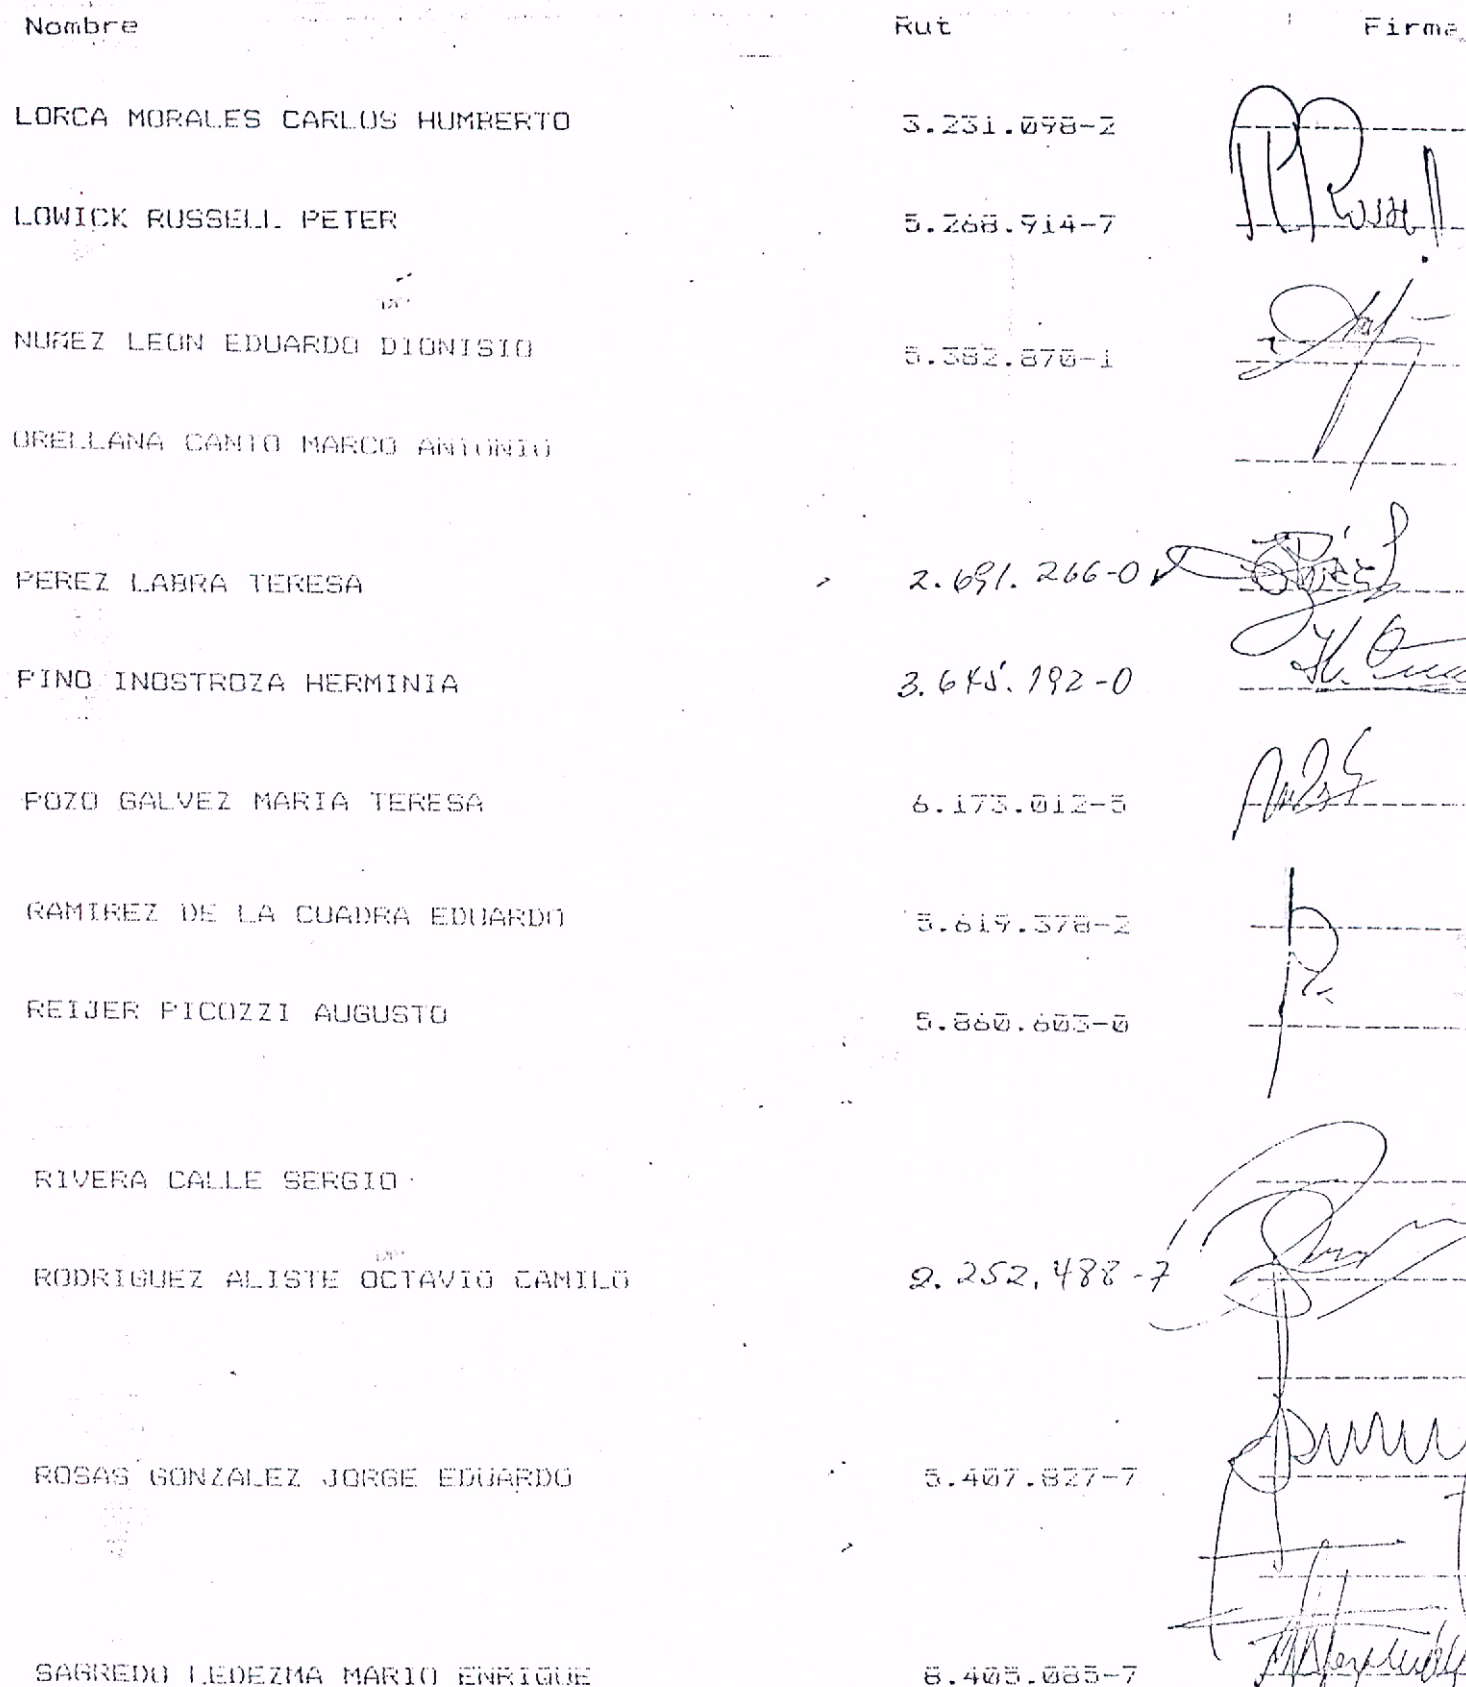 Nombre Rut Firma
LORCA MORALES CARLOS HUMBERTO 3.231.098-2
LOWICK RUSSELL PETER 5.268.914-7
NUÑEZ LEON EDUARDO DIONISIO 5.382.870-1
ORELLANA CANTO MARCO ANTONIO
PEREZ LABRA TERESA 2.691.266-0
PINO INOSTROZA HERMINIA
POZO GALVEZ MARIA TERESA 6.173.012-5
RAMIREZ DE LA CUADRA EDUARDO 5.619.378-2
REIJER PICOZZI AUGUSTO 5.860.603-0
RIVERA CALLE SERGIO
RODRIGUEZ ALISTE OCTAVIO CAMILO 2.252.488-7
ROSAS GONZALEZ JORGE EDUARDO 5.407.827-7
SAGREDO LEDEZMA MARIO ENRIQUE 8.405.085-7